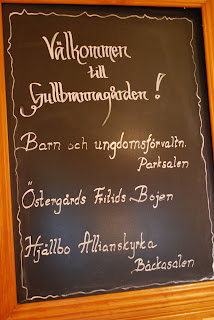 Välkommen
till
Gullbrannagården!
Barn och ungdomsförvaltn.
Parksalen
Östergårds Fritids Bojen
Hjällbo Allianskyrka
Bäckasalen